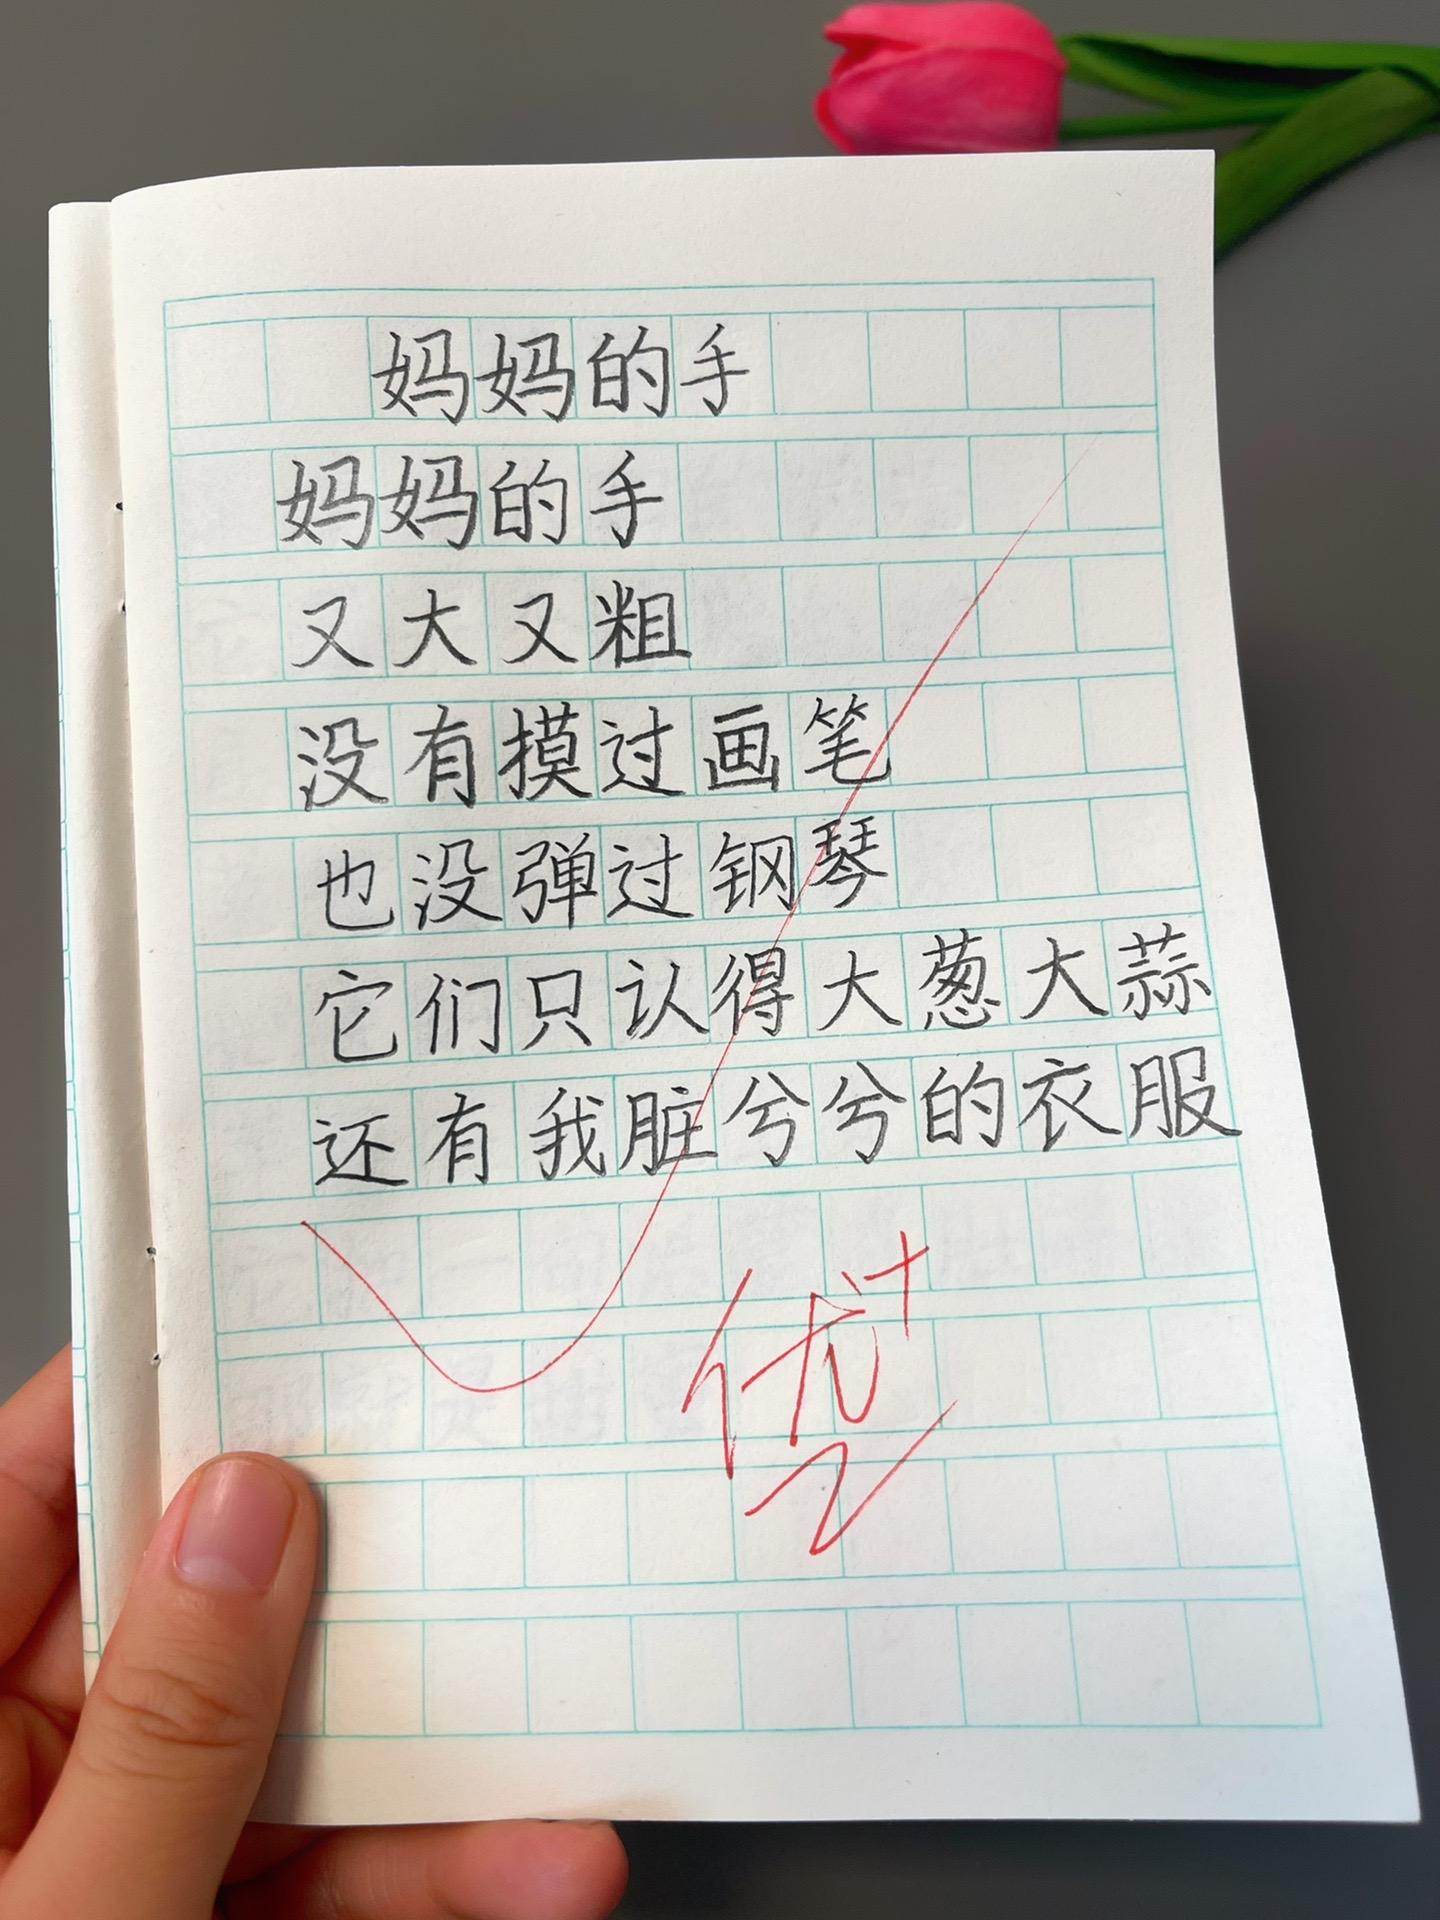 妈妈的手
妈妈的手
又大又粗
没有摸过画笔
也没弹过钢琴
它们只认得大葱大蒜
还有我脏兮兮的衣服
优+